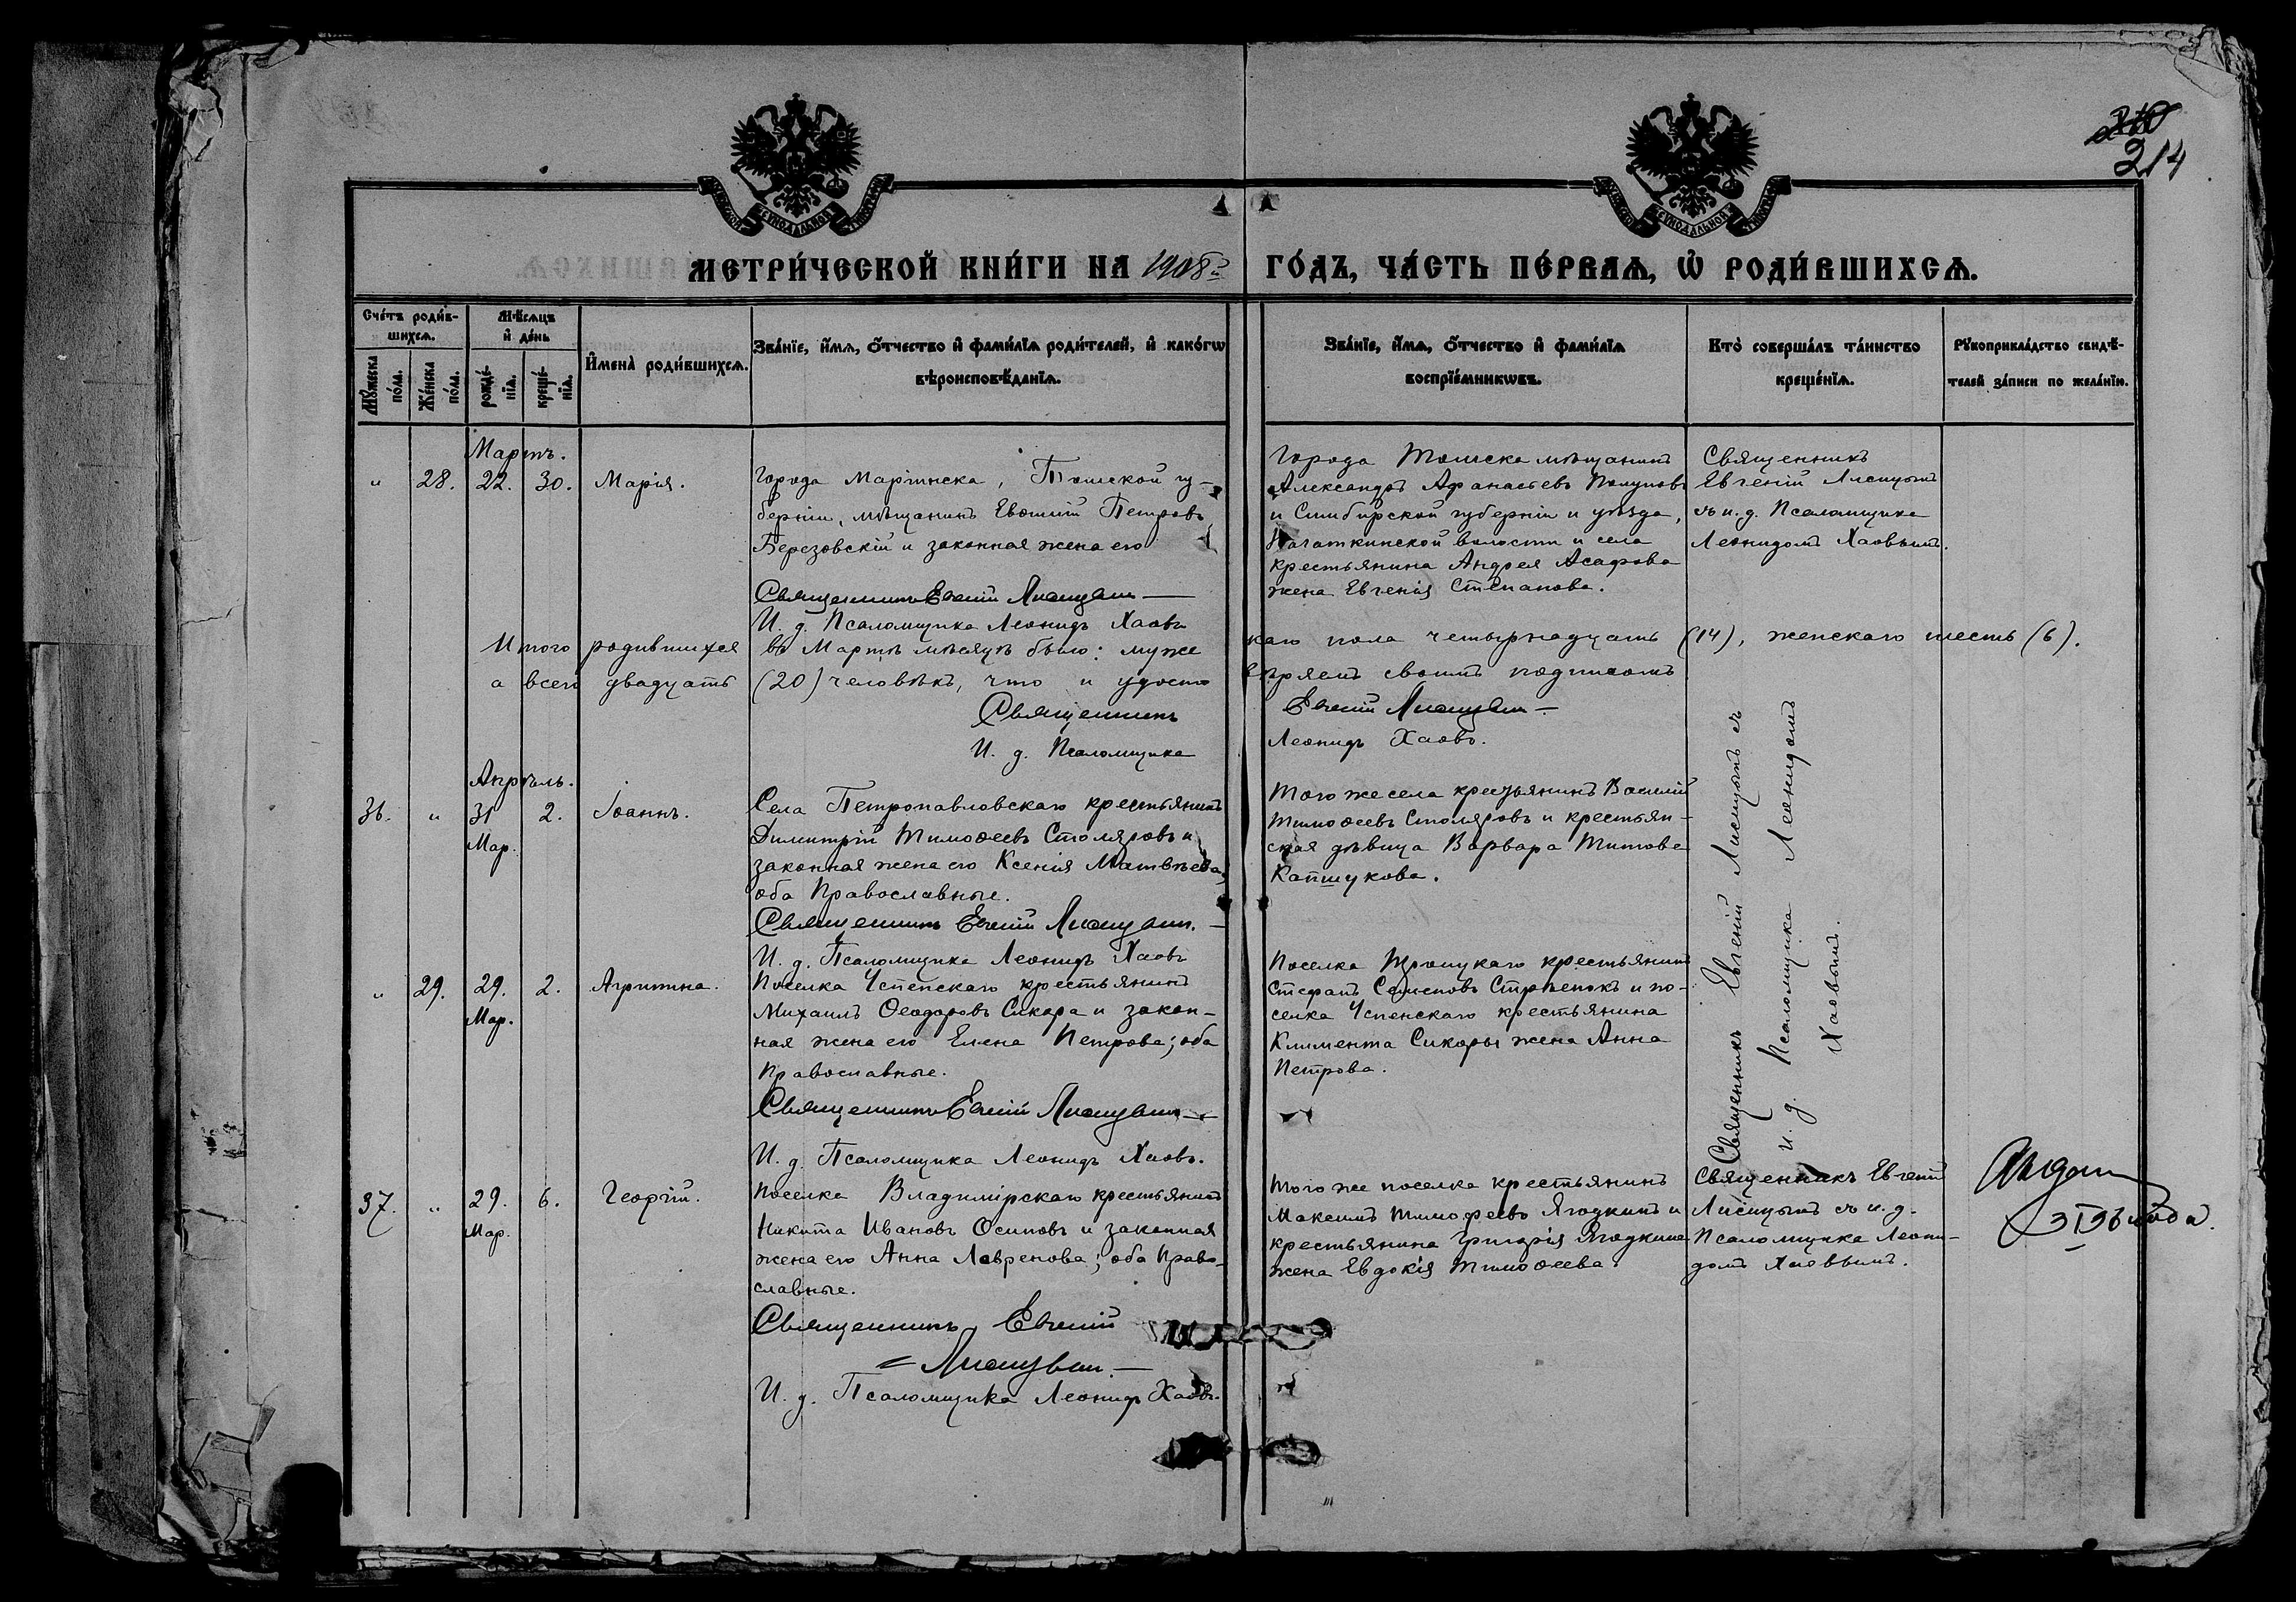 214
МЕТРИ́ЧЕСКОЙ КНИ́ГИ НА 1908й ГО́ДЪ, ЧА́СТЬ ПЕ́РВАѦ, Ѡ҆ РОДИ́ВШИХСѦ.
Сче́тъ роди́в-
шихсѧ.
Мꙋ́жеска
по́ла.
Же́нска
по́ла.
Мѣ́сѧцъ
и҆ де́нь
рожде́-
нїѧ.
креще́-
нїѧ.
И҆мена̀ роди́вшихсѧ.
Зва́нїе, и҆́мѧ, ѻ҆́тчество и҆ фами́лїѧ роди́телей, и҆ како́гѡ
вѣроисповѣ́данїѧ.
Зва́нїе, и҆́мѧ, ѻ҆́тчество и҆ фами́лїѧ
воспрїе́мникѡвъ.
Кто̀ соверша́лъ та́инство
креще́нїѧ.
Рꙋкоприкла́дство свидѣ́-
телей за́писи по жела́нїю.
Мартъ.
" 28. 22. 30. Марія.
Города Маріинска, Томской гу-
берніи, мѣщанинъ Евѳимій Петровъ
Березовскій и законная жена его
Священникъ Евгеній Лисицынъ
И. д. Псаломщика Леонидъ Хаовъ
Города Томска мѣщанинъ
Александръ Афанасьевъ
и Симбирской губерніи и уѣзда,
Нагаткинской волости и села
крестьянина Андрея Асафова
жена Евгенія Степанова.
Священникъ
Евгеній Лисицынъ
съ и. д. Псаломщика
Леонидомъ Хаовымъ.
Итого родившихся въ Мартѣ мѣсяцѣ было: муже скаго пола четырнадцать (14), женскаго шесть (6).
а всего двадцать (20) человѣкъ, что и удосто вѣряемъ своимъ подписомъ
Священникъ Евгеній Лисицынъ
И. д. Псаломщика Леонидъ Хаовъ.
Апрѣль.
36. " 31 2. Іоаннъ.
Мар.
Села Петропавловскаго крестьянинъ
Димитрій Тимоѳеевъ Столяровъ и
законная жена его Ксенія Матвѣева,
оба Православные.
Священникъ Евгеній Лисицынъ.
И. д. Псаломщика Леонидъ Хаовъ
Того же села крестьянинъ Василій
Тимоѳеевъ Столяровъ и крестьян-
ская дѣвица Варвара Титова
Капшукова.
Священникъ Евгеній Лисицынъ съ
и. д. Псаломщика Леонидомъ
Хаовымъ.
" 29. 29. 2. Агрипина.
Мар.
Поселка Успенскаго крестьянинъ
Михаилъ Ѳеодоровъ Сикора и закон-
ная жена его Елена Петрова; оба
Православные.
Священникъ Евгеній Лисицынъ
И. д. Псаломщика Леонидъ Хаовъ.
Поселка Троицкаго крестьянинъ
Стефанъ Семеновъ и по-
селка Успенскаго крестьянина
Климента Сикоры жена Анна
Петрова.
37. " 29. 6. Георгій.
Мар.
Поселка Владимірскаго крестьянинъ
Никита Ивановъ Осиповъ и законная
жена его Анна Лавренова; оба Право-
славные.
Священникъ Евгеній
Лисицынъ.
И. д. Псаломщика Леонидъ Хаовъ.
Того же поселка крестьянинъ
Максимъ Тимофеевъ Ягодкинъ и
крестьянина Григорія Ягодкина
жена Евдокія Тимоѳеева.
Священникъ Евгеній
Лисицынъ съ и. д.
Псаломщика Леони-
домъ Хаовымъ.